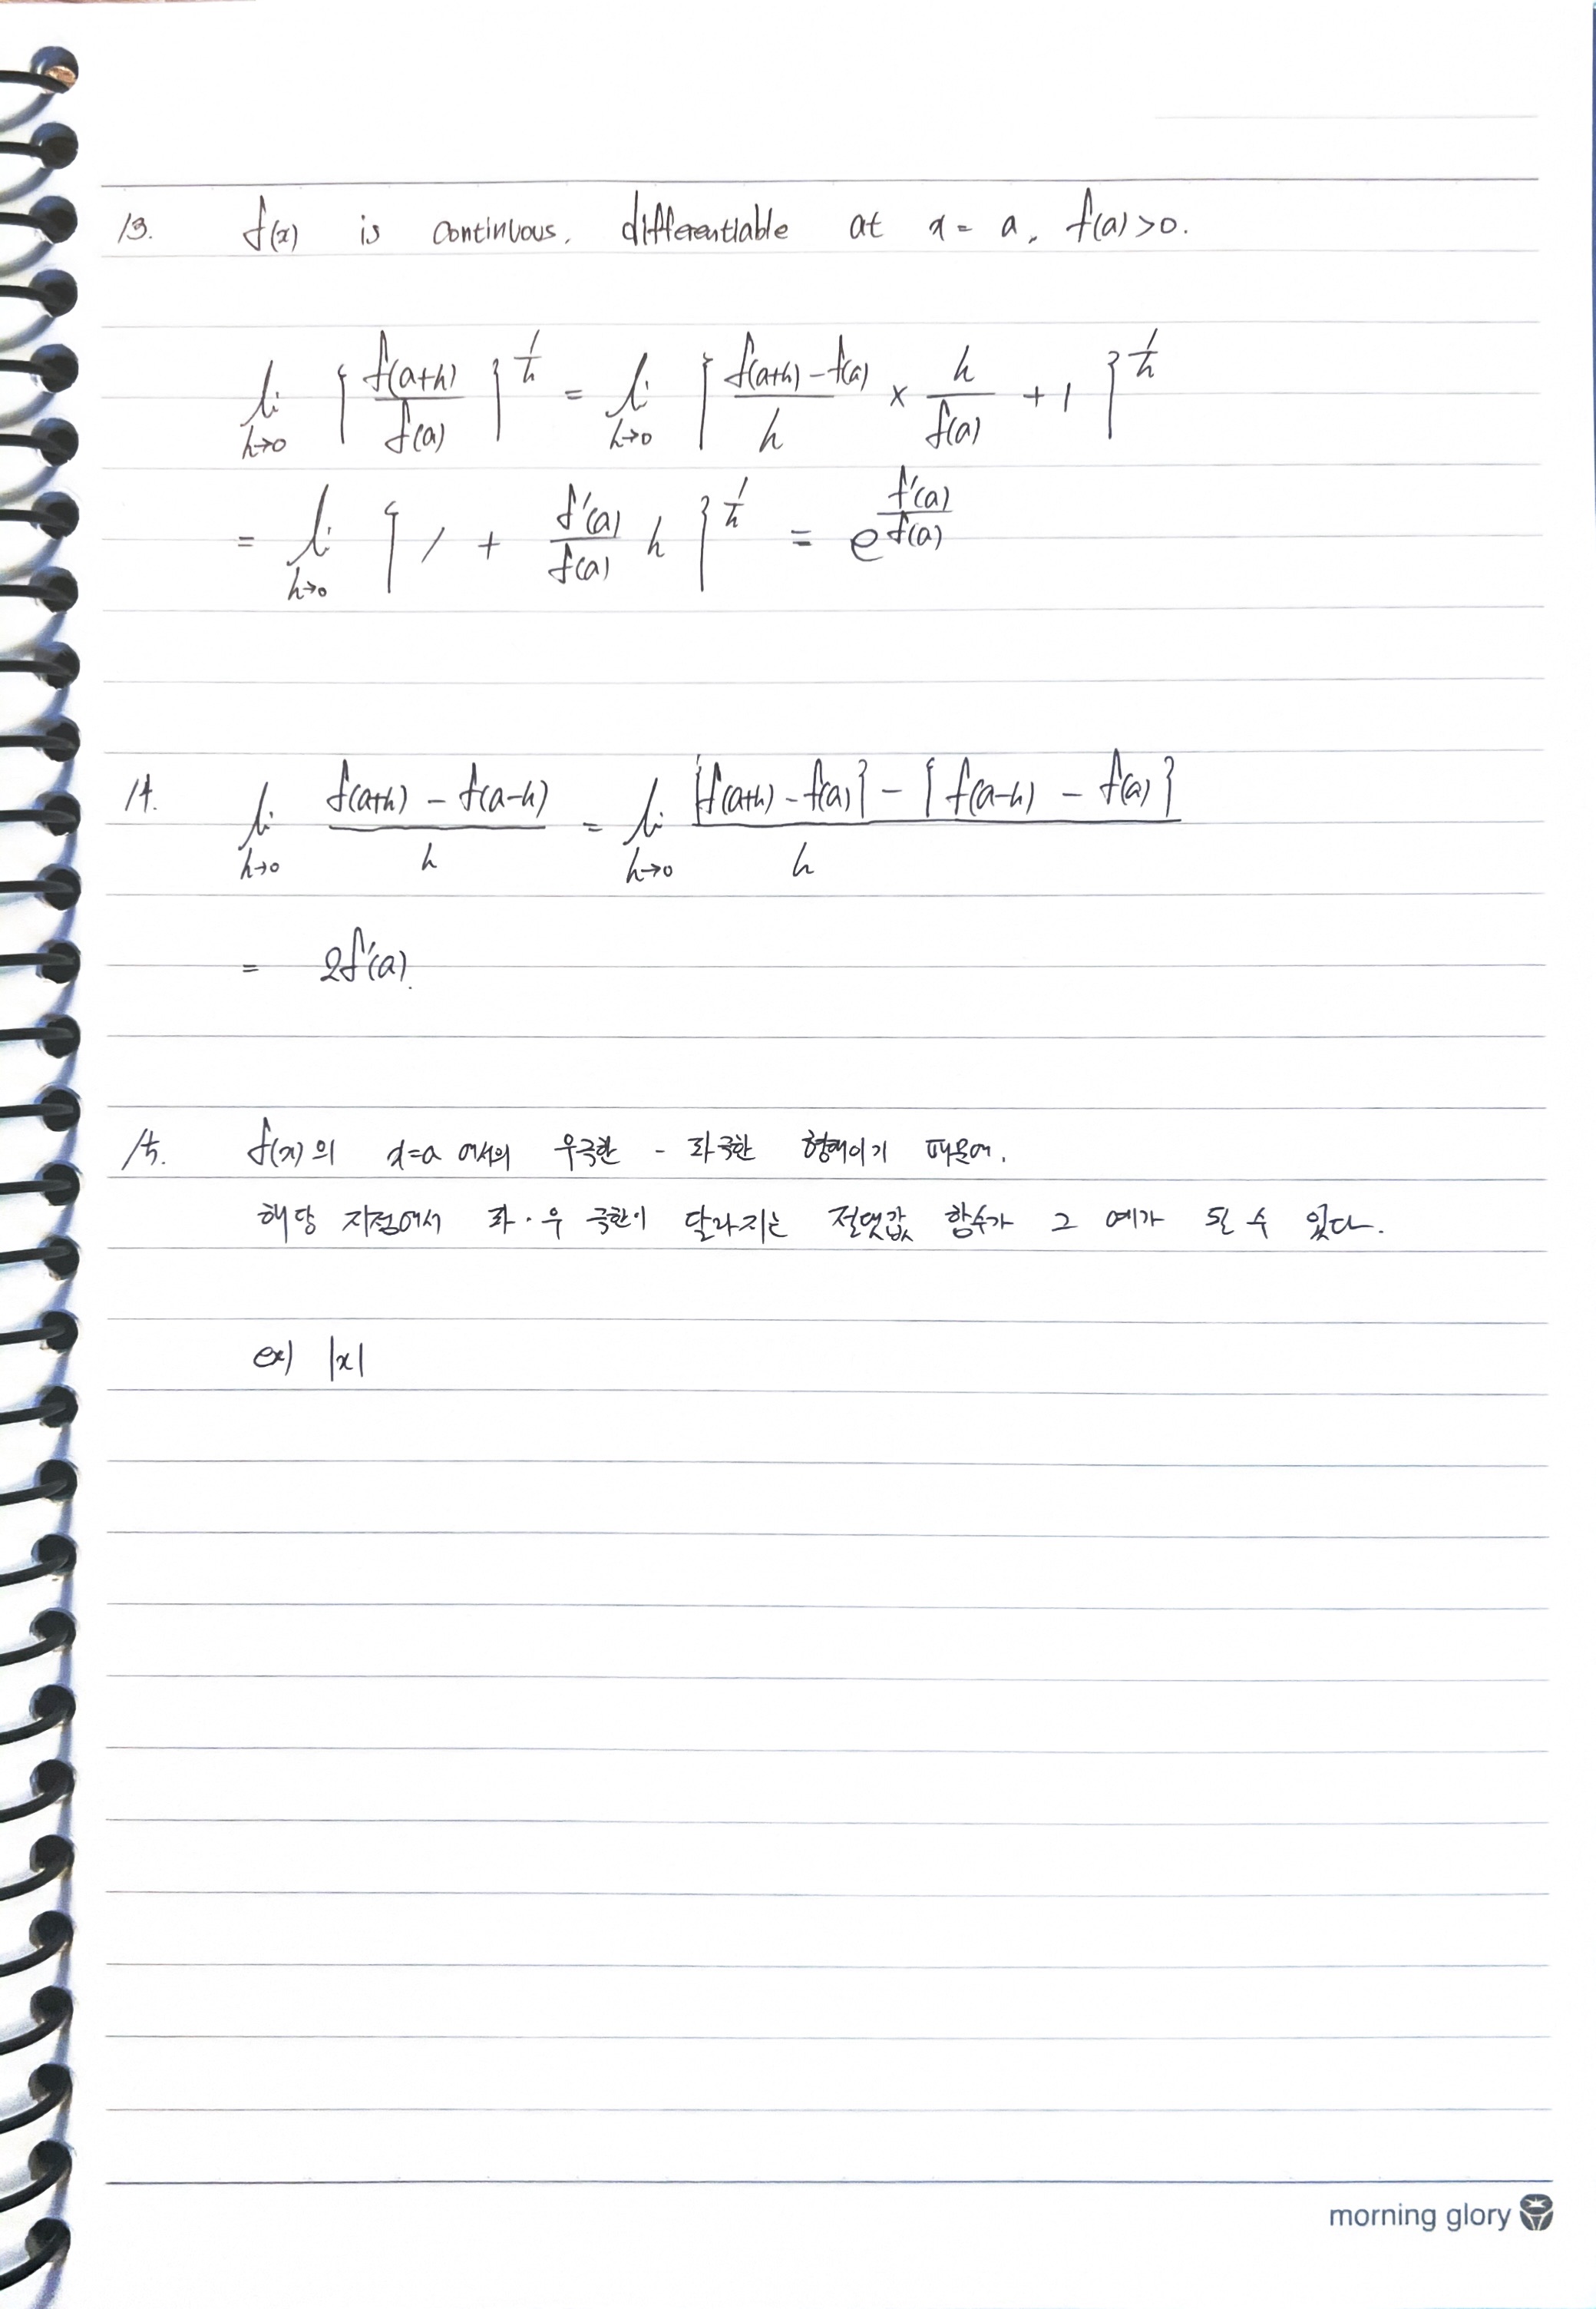 13. f(x) is continuous, differentiable at x = a, f(a) > 0.
li_{h→0} { f(a+h) / f(a) }^{1/h} = li_{h→0} { (f(a+h) - f(a)) / h × h / f(a) + 1 }^{1/h}
= li_{h→0} { 1 + f'(a) / f(a) h }^{1/h} = e^{f'(a) / f(a)}
14. li_{h→0} (f(a+h) - f(a-h)) / h = li_{h→0} ({f(a+h) - f(a)} - {f(a-h) - f(a)}) / h
= 2f'(a).
15. f(x)의 x=a 에서의 우극한 - 좌극한 형태이기 때문에,
해당 지점에서 좌·우 극한이 달라지는 절댓값 함수가 그 예가 될 수 있다.
ex) |x|
morning glory